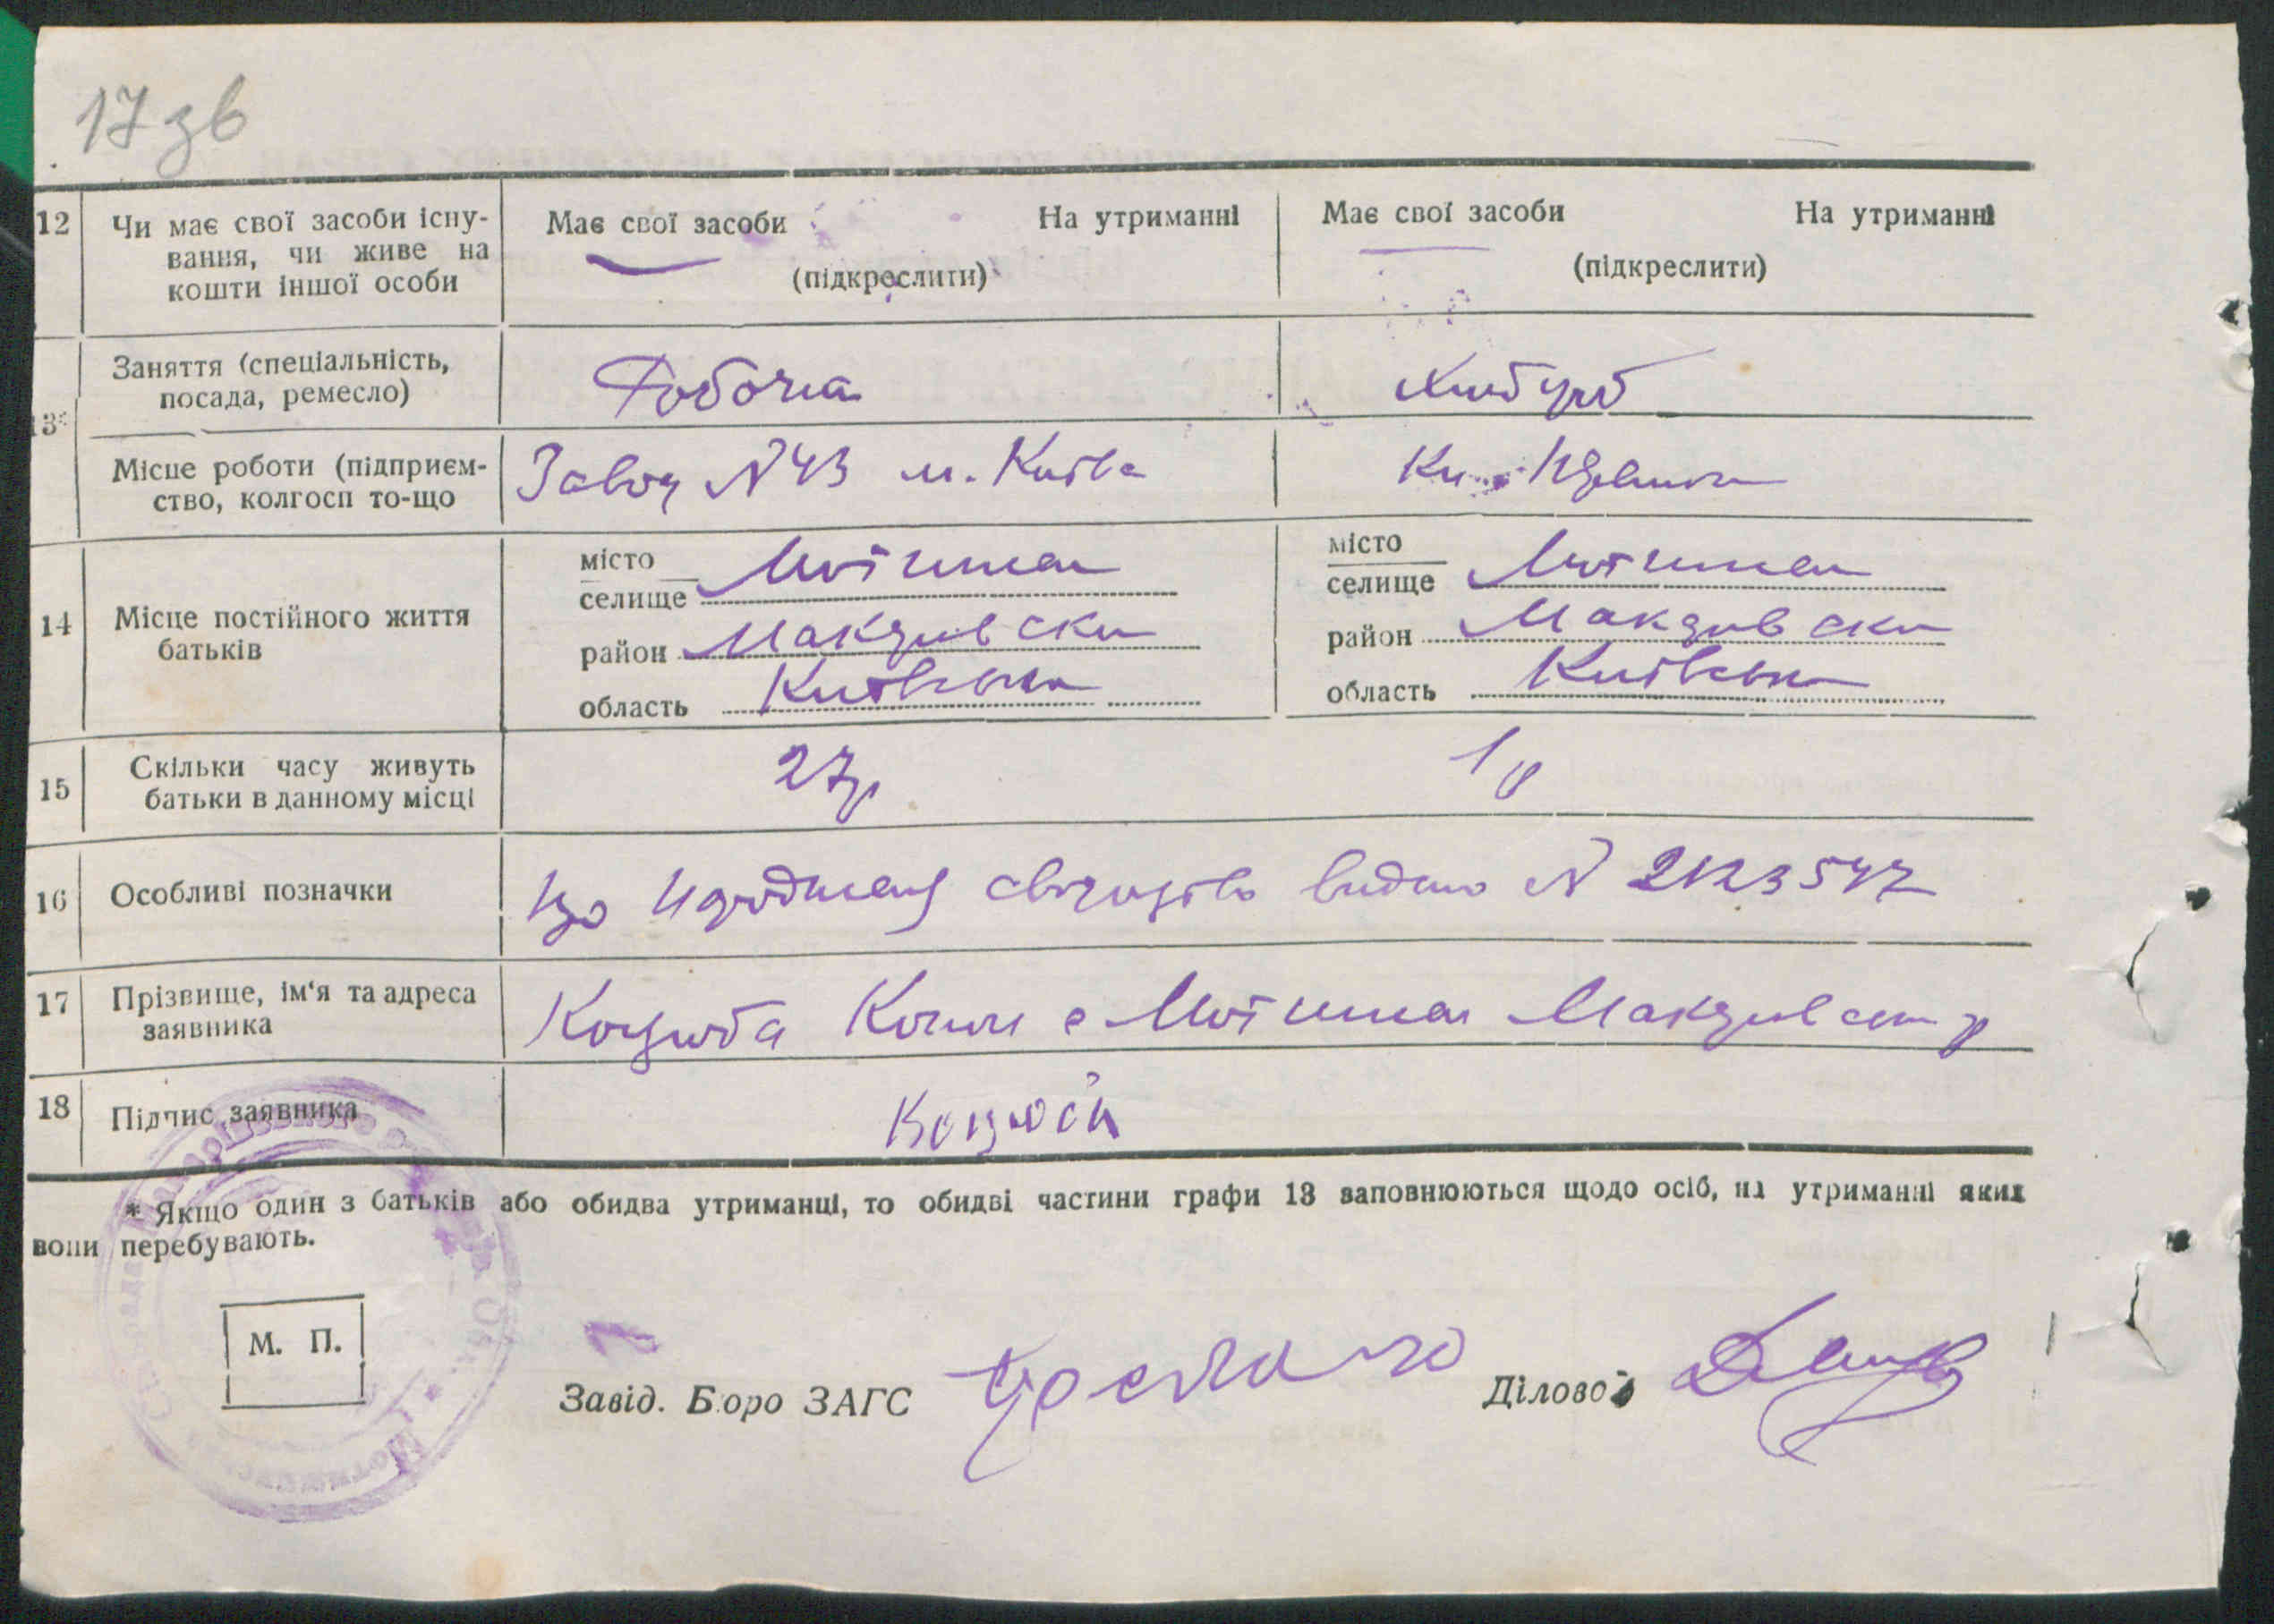 17 зв
12 Чи має свої засоби існу- Має свої засоби На утриманні Має свої засоби На утриманні
вання, чи живе на (підкреслити) (підкреслити)
кошти іншої особи
Заняття (спеціальність, Робочиа
посада, ремесло)
13*
Місце роботи (підприєм- Завод №43 м. Київа
ство, колгосп то-що
14 Місце постійного життя батьків
місто Мотижин місто Мотижин
селище селище
район Макарівськи район Макарівськи
область Київська область Київська
15 Скільки часу живуть 27р 1р
батьки в данному місці
16 Особливі позначки що народженя свідоцтво видано № 2123547
17 Прізвище, ім'я та адреса Коцюба с Мотижин Макарівськ р
заявника
18 Підпис заявника Коцюба
* Якщо один з батьків або обидва утриманці, то обидві частини графи 13 заповнюються щодо осіб, на утриманні яких
вони перебувають.
М. П.
Завід. Бюро ЗАГС Діловод